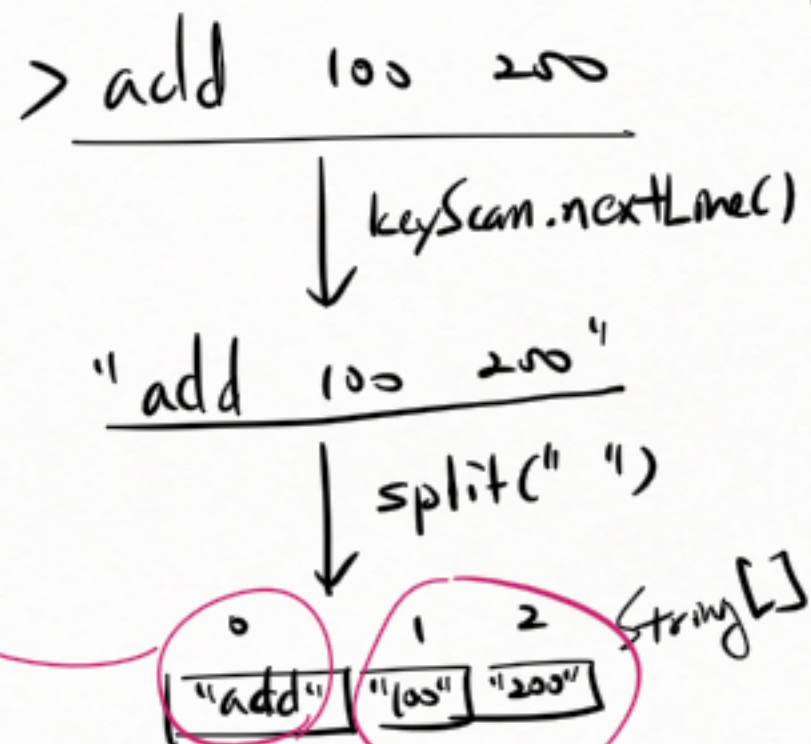 > add 100 200
keyScan.nextLine()
"add 100 200"
split(" ")
0 1 2 String[]
"add" "100" "200"